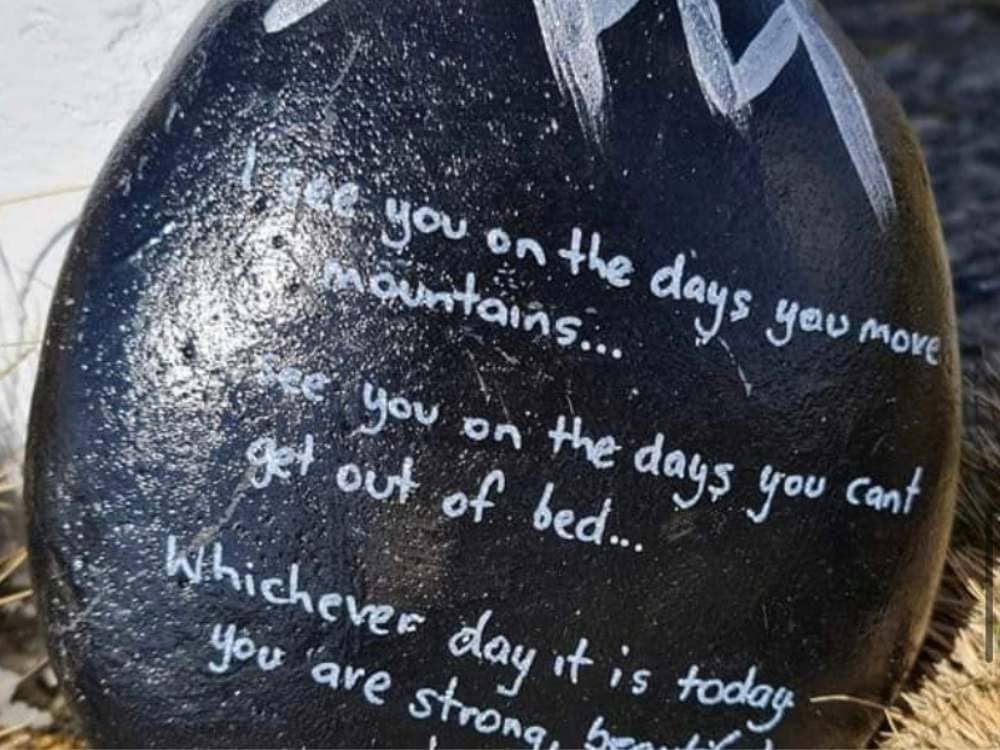 I see you on the days you move
mountains...
see you on the days you cant
get out of bed...
Whichever day it is today
you are strong,